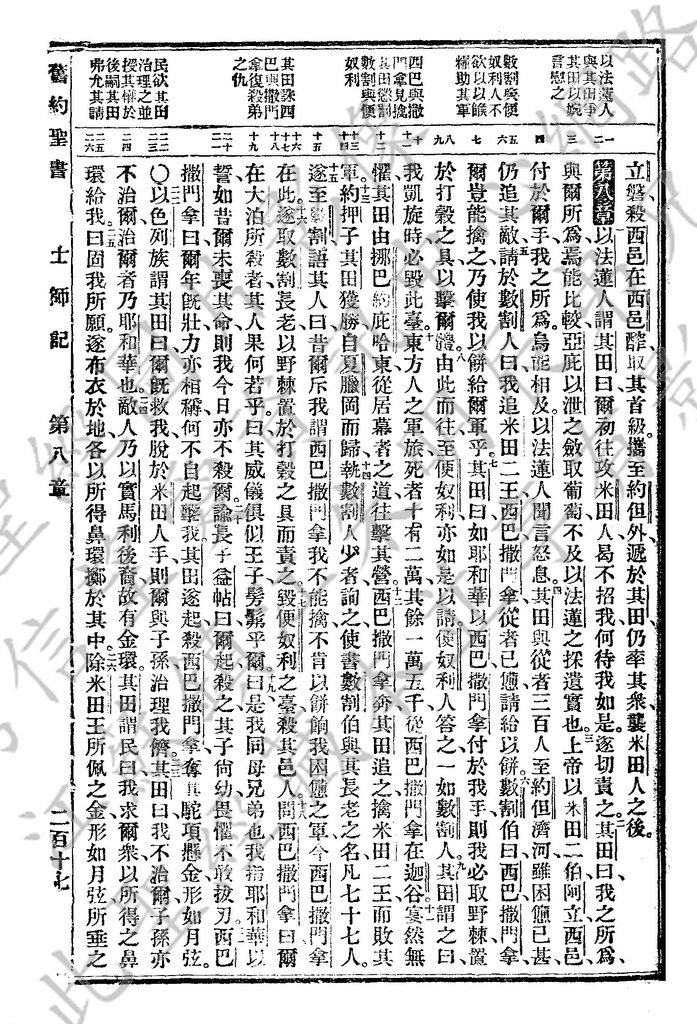 立磐殺西邑在西邑醡取其首級攜至約但外遞於其田仍率其衆襲米田人之後
第八章以法蓮人謂其田曰爾初往攻米田人曷不招我何待我如是遂切責之其田曰我之所爲
與爾所爲焉能比較亞庇以泄之斂取葡萄不及以法蓮之採遺實也上帝以米田二伯阿立西邑
付於爾手我之所爲烏能相及以法蓮人聞言怒息其田與從者三百人至約但濟河雖困憊已甚
仍追其敵請於數割人曰我追米田二王西巴撒門拿從者已憊請給以餅數割伯曰西巴撒門拿
爾豈能擒之乃使我以餅給爾軍乎其田曰如耶和華以西巴撒門拿付於我手則我必取野棘置
於打穀之具以擊爾體由此而往至便奴利亦如是以請便奴利人答之一如數割人其田謂之曰
我凱旋時必毀此臺東方人之軍旅死者十有二萬其餘一萬五千從西巴撒門拿在迦谷寂然無
懼其田由挪巴約庇哈東從居幕者之道往擊其營西巴撒門拿奔其田追之擒米田二王而敗其
軍約押子其田獲勝自夏臘岡而歸執數割人少者詢之使書數割伯與其長老之名凡七十七人
遂至數割語其人曰昔爾斥我謂西巴撒門拿我不能擒不肯以餅餉我困憊之軍今西巴撒門拿
在此遂取數割長老以野棘置於打穀之具而責之毀便奴利之臺殺其邑人問西巴撒門拿曰爾
在大泊所殺者其人果何若乎曰其威儀俱似王子髣髴乎爾曰是我同母兄弟也我指耶和華以
誓如昔爾未喪其命則我今日亦不殺爾諭長子益帖曰爾起殺之其子尚幼畏懼不敢拔刃西巴
撒門拿曰爾年旣壯力亦相稱何不自起擊我其田遂起殺西巴撒門拿奪其駝項懸金形如月弦
〇以色列族謂其田曰爾旣救我脫於米田人手則爾與子孫治理我儕其田曰我不治爾子孫亦
不治爾治爾者乃耶和華也敵人乃以實馬利後裔故有金環其田謂民曰我求爾衆以所得之鼻
環給我曰固我所願遂布衣於地各以所得鼻環擲於其中除米田王所佩之金形如月弦所垂之
以法蓮人
與其田爭
其田以婉
言慰之
數割與便
奴利人不
欲以以餱
糧助其軍
西巴與撒
門拿見擒
其田懲割
數割與便
奴利
其田誅西
巴與撒門
拿復殺弟
之仇
民欲其田
治理之並
授其權於
後嗣其田
弗允其請
舊約聖書 士師記 第八章 二百十七